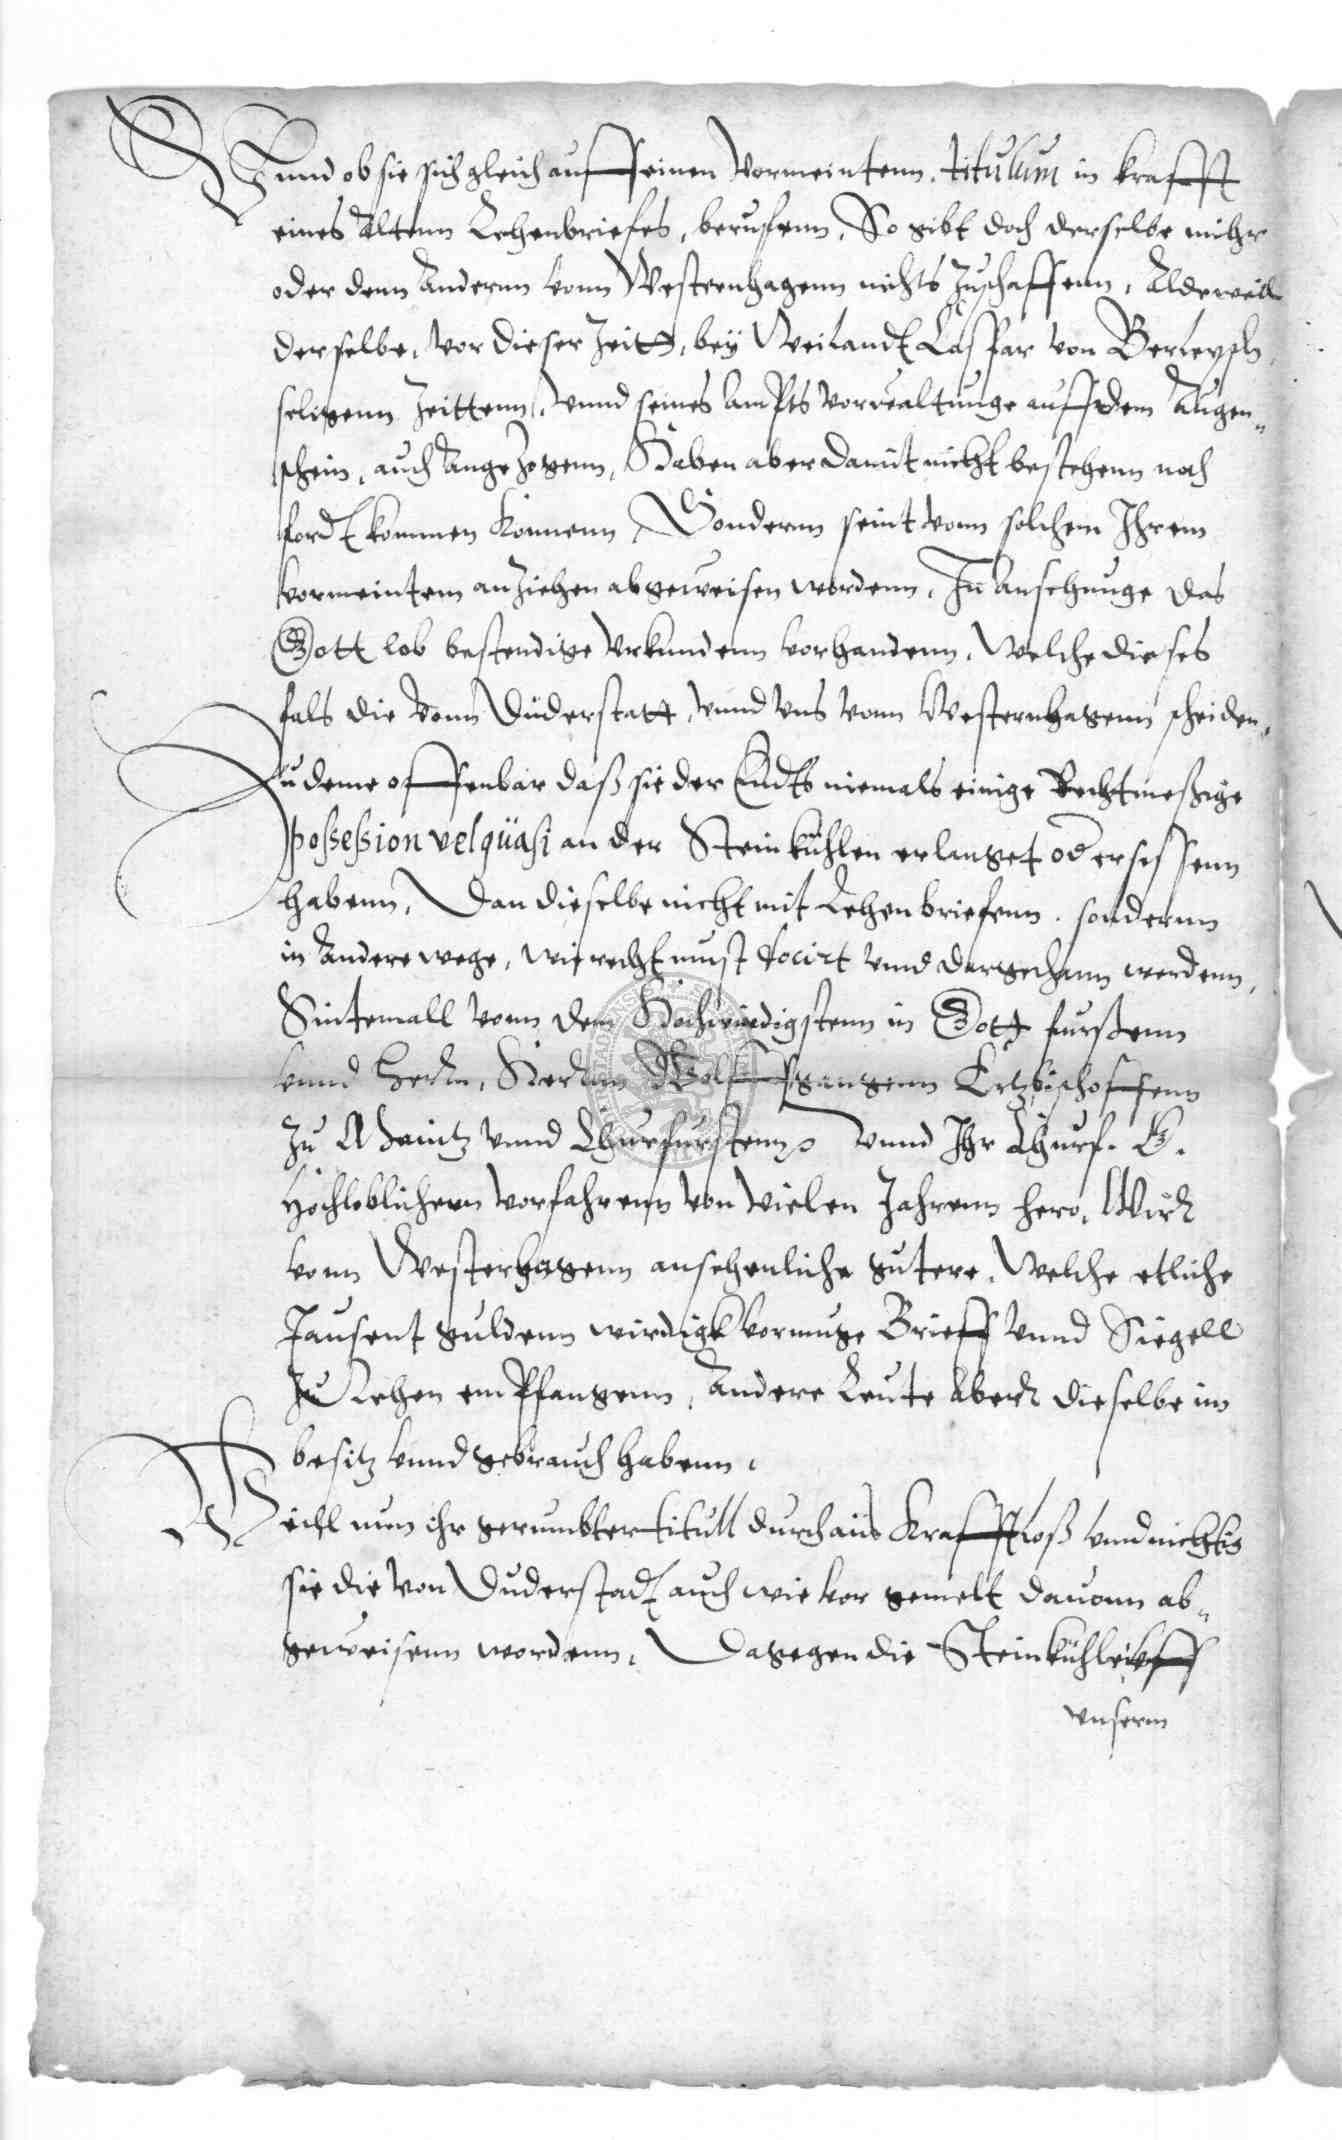 Vnnd ob sie sich gleich auff einen vormeintenn, titulum in krafft
eines Altenn Lehenbriefes, beruffenn, So gibt doch derselbe mihr
oder denn Anderun vonn Westernhagenn nichts zuschaffenn, Alderweill
derselbe, vor dieser Zeitt, bey Weilandt Casspar von Berlepsch,
seligenn Zeittenn, vnnd seines Ampts vorwaltunge auff dem Augen=
schein, auch Angezogenn, Haben aber damit nicht bestehenn noch
fordt kommen konnenn, Sonderun seint vonn solchem Ihrem
vormeintem anziehen abgeweisen wordenn, In ansehunge das
Gott lob bestendige vrkundenn vorhandenn, Welche dieses
fals die vonn Duderstatt, vnnd vns vonn Westernhagenn scheiden,
Zu deme offenbar daß sie der Endts niemals einige Rechtmeßige
possession vel quasi an der Steinkuhlen erlanget oder sessenn
habenn, Dan dieselbe nicht mit Lehenbriefenn, sonderun
in Andere wege, wie recht must docirt vnnd dargethann werdenn,
Sintemall vonn dem Hochwirdigstenn in Gott furstenn
vnnd Hern, Hernn Wolffgangenn Ertzbischoffenn
zu Maintz vnnd Churfurstenn vnnd Ihr Churf. G.
Hochloblichenn vorfahrenn von vielen Jahrenn hero, Wir
vonn Westerhagenn ansehenliche gutere, Welche etliche
Tausent guldenn wirdigk vormuge Brieff vnnd Siegell
zu Lehen empfangenn, Andere Leute Aber dieselbe im
besitz vnnd gebrauch habenn,
Weill nun ihr gerumbter titull durchaus Krafftloß vnnd nichtig
sie die von Duderstadt auch wie vor gemelt dauonn ab=
geweisenn wordenn, Dagegen die Steinkuhle vff
vnserm